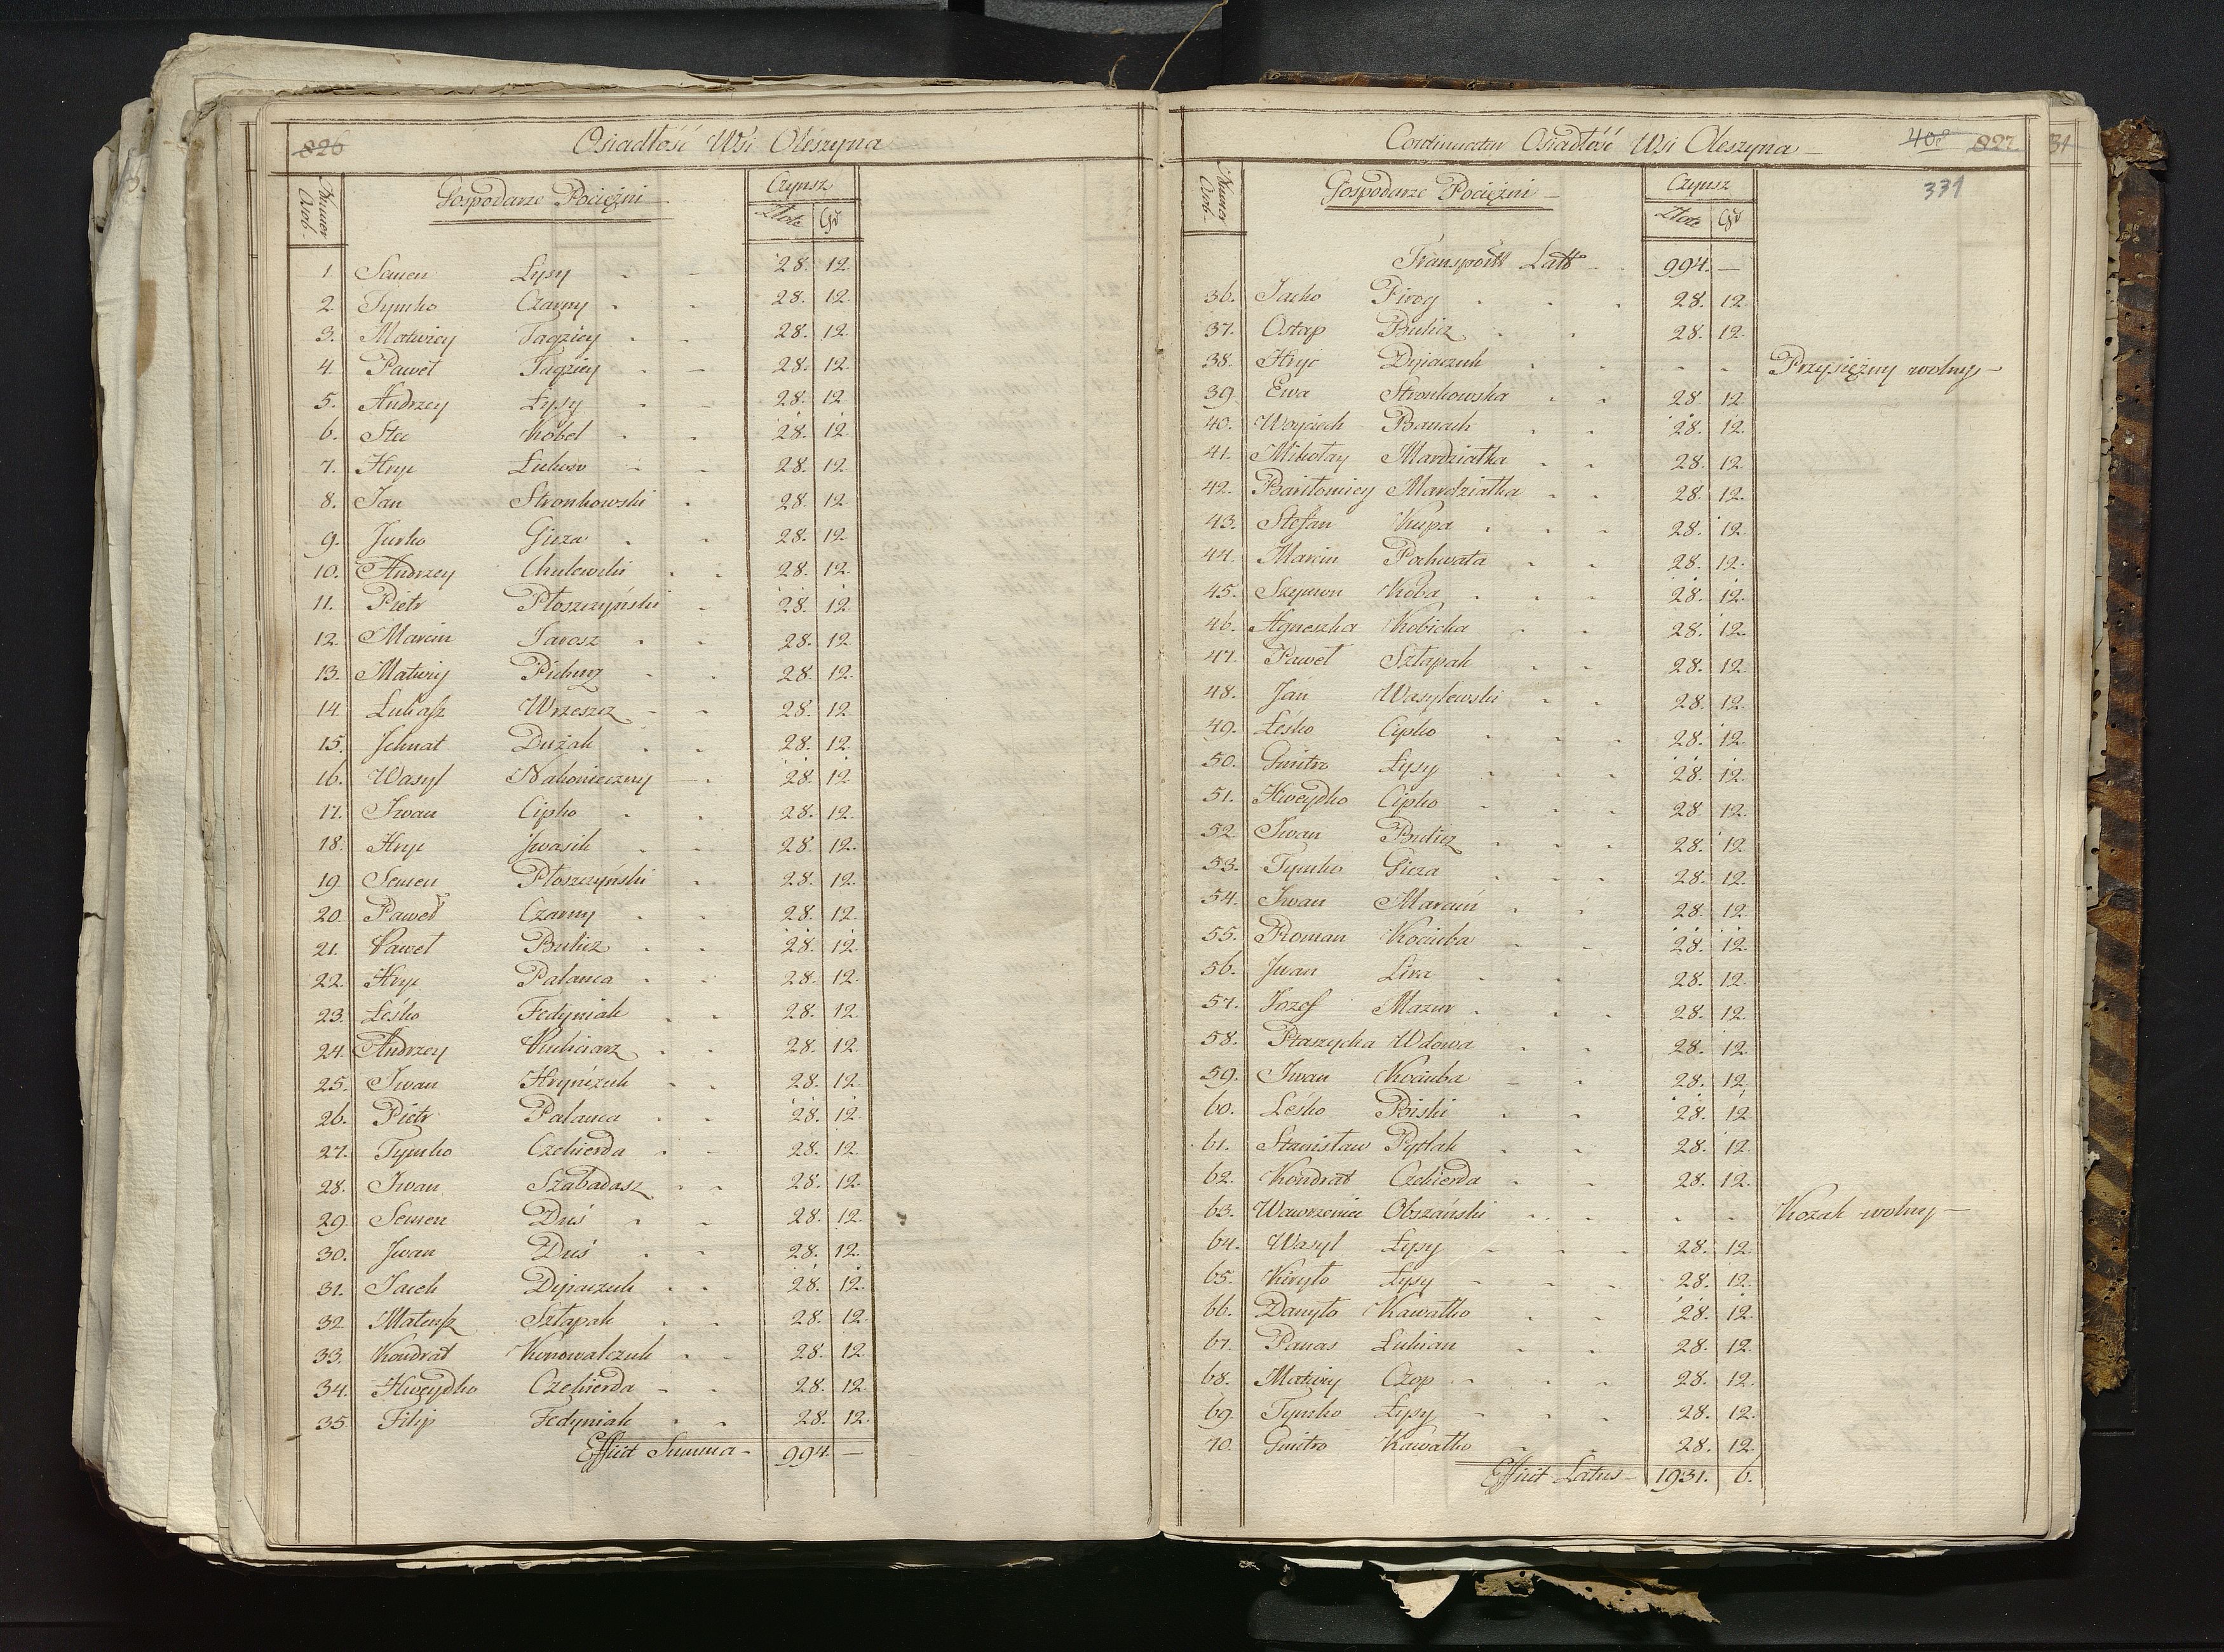 826
Osiadłość Wsi Oleszyna
Numer Osob.
Gospodarze Pociężni
Czynsz
Złote Gr
1. Semen Łysy 28. 12.
2. Tymko Czarny 28. 12.
3. Matwiey Tagziey 28. 12.
4. Paweł Tagziey 28. 12.
5. Andrzey Łysy 28. 12.
6. Stec Kobel 28. 12.
7. Hryc Lukow 28. 12.
8. Jan Stronkowski 28. 12.
9. Jurko Giza 28. 12.
10. Andrzey Chulewski 28. 12.
11. Piotr Płoszczyński 28. 12.
12. Marcin Jarosz 28. 12.
13. Matwiy 28. 12.
14. Łukasz Wrzeszcz 28. 12.
15. Jchnat Dużak 28. 12.
16. Wasyl Nakonieczny 28. 12.
17. Jwan Cipko 28. 12.
18. Hryc Jwasik 28. 12.
19. Semen Płoszczyński 28. 12.
20. Paweł Czarny 28. 12.
21. Paweł Bulicz 28. 12.
22. Hryc Palanca 28. 12.
23. Leśko Fedyniak 28. 12.
24. Andrzey Kuliciarz 28. 12.
25. Jwan Hryńczuk 28. 12.
26. Piotr Palanca 28. 12.
27. Tymko Czchierda 28. 12.
28. Jwan Szabadasz 28. 12.
29. Semen Duś 28. 12.
30. Jwan Duś 28. 12.
31. Jacek Dyjaczuk 28. 12.
32. Mateusz Sztapak 28. 12.
33. Kondrat Konowalczuk 28. 12.
34. Hweydko Czchierda 28. 12.
35. Filip Fedyniak 28. 12.
Efficit Summa 994. —
Continuatio Osiadłość Wsi Oleszyna
408 827. 31
331
Numer Osob.
Gospodarze Pociężni
Czynsz
Złote Gr
Transport Lat 994. —
36. Jacko Pirog 28. 12.
37. Ostap Bulicz 28. 12.
38. Hryć Dyiaczuk Przysiężny wolny
39. Ewa Stronkowska 28. 12.
40. Woyciech Banach 28. 12.
41. Mikołay Mardziałka 28. 12.
42. Bartłomiey Mardziałka 28. 12.
43. Stefan Kupa 28. 12.
44. Marcin Pochwała 28. 12.
45. Szymon Koba 28. 12.
46. Agneszka Kobicka 28. 12.
47. Paweł Sztapak 28. 12.
48. Jan Wasylewski 28. 12.
49. Leśko Cipko 28. 12.
50. Gmitro Łysy 28. 12.
51. Hweydko Cipko 28. 12.
52. Jwan Bulicz 28. 12.
53. Tymko Giza 28. 12.
54. Jwan Marciń 28. 12.
55. Roman Kociuba 28. 12.
56. Jwan Lira 28. 12.
57. Jozef Mazur 28. 12.
58. Ptaszycha Wdowa 28. 12.
59. Jwan Kociuba 28. 12.
60. Leśko Biski 28. 12.
61. Stanisław Pytlak 28. 12.
62. Kondrat Czchierda 28. 12.
63. Wawrzeniec Obszański Kozak wolny
64. Wasyl Łysy 28. 12.
65. Kiryło Łysy 28. 12.
66. Danyło Kawałko 28. 12.
67. Panas Łukian 28. 12.
68. Matwiy Czop 28. 12.
69. Tymko Łysy 28. 12.
70. Gmitro Kawałko 28. 12.
Efficit Latus 1931. 6.